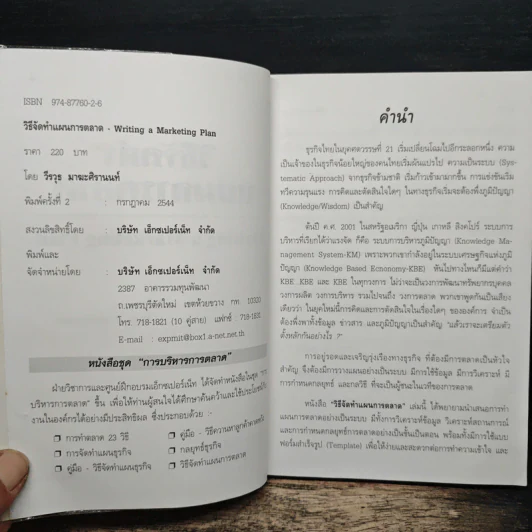 ISBN 974-87760-2-6
วิธีจัดทำแผนการตลาด - Writing a Marketing Plan
ราคา 220 บาท
โดย วีรวุธ มาฆะศิรานนท์
พิมพ์ครั้งที่ 2 : กรกฎาคม 2544
สงวนลิขสิทธิ์โดย : บริษัท เอ็กซเปอร์เน็ท จำกัด
พิมพ์และ
จัดจำหน่ายโดย : บริษัท เอ็กซเปอร์เน็ท จำกัด
2387 อาคารรวมทุนพัฒนา
ถ.เพชรบุรีตัดใหม่ เขตห้วยขวาง กท. 10320
โทร. 718-1821 (10 คู่สาย) แฟกซ์ : 718-1831
E-mail : expmit@box1.a-net.net.th
หนังสือชุด "การบริหารการตลาด"
ฝ่ายวิชาการและศูนย์ฝึกอบรมเอ็กซเปอร์เน็ท ได้จัดทำหนังสือในชุด "การ
บริหารการตลาด" ขึ้น เพื่อให้ท่านผู้สนใจได้ศึกษาค้นคว้าและใช้ประโยชน์ใน
งานในองค์กรได้อย่างมีประสิทธิผล ซึ่งประกอบด้วย :-
❒ การทำตลาด 23 วิธี ❒ คู่มือ - วิธีความหาลูกค้าคาดหวัง
❒ การจัดทำแผนธุรกิจ ❒ กลยุทธ์ธุรกิจ
❒ คู่มือ - วิธีจัดทำแผนธุรกิจ ❒ วิธีจัดทำแผนการตลาด
คำนำ
ธุรกิจไทยในยุคศตวรรษที่ 21 เริ่มเปลี่ยนโฉมไปอีกระลอกหนึ่ง ความ
เป็นเจ้าของในธุรกิจน้อยใหญ่ของคนไทยเริ่มผันแปรไป ความเป็นระบบ (Sys-
tematic Approach) จากธุรกิจข้ามชาติ เริ่มก้าวเข้ามามากขึ้น การแข่งขันเริ่ม
ทวีความรุนแรง การคิดและตัดสินใจใดๆ ในทางธุรกิจเริ่มจะต้องพึ่งภูมิปัญญา
(Knowledge/Wisdom) เป็นสำคัญ
ต้นปี ค.ศ. 2001 ในสหรัฐอเมริกา ญี่ปุ่น เกาหลี สิงคโปร์ ระบบการ
บริหารที่เรียกได้ว่าแรงจัด ก็คือ ระบบการบริหารภูมิปัญญา (Knowledge Ma-
nagement System-KM) เพราะพวกเขากำลังอยู่ในระบบเศรษฐกิจแห่งภูมิ
ปัญญา (Knowledge Based Ecnonomy-KBE) หันไปทางไหนก็มีแต่คำว่า
KBE KBE และ KBE ในทุกวงการ ไม่ว่าจะเป็นวงการพัฒนาทรัพยากรบุคคล
วงการผลิต วงการบริหาร รวมไปจนถึง วงการตลาด พวกเขาพูดกันเป็นเสียง
เดียวว่า ในยุคใหม่นี้การคิดและการตัดสินใจในเรื่องใดๆ ขององค์การ จำเป็น
ต้องพึ่งพาทั้งข้อมูล ข่าวสาร และภูมิปัญญาเป็นสำคัญ "แล้วเราจะเตรียมตัว
ตั้งหลักกันอย่างไร ?"
การอยู่รอดและเจริญรุ่งเรืองทางธุรกิจ ที่ต้องมีการตลาดเป็นหัวใจ
สำคัญ จึงต้องมีการวางแผนอย่างเป็นระบบ มีการใช้ข้อมูล มีการวิเคราะห์ มี
การกำหนดกลยุทธ์ และกลวิธี ที่จะเป็นผู้ชนะในเวทีของการตลาด
หนังสือ "วิธีจัดทำแผนการตลาด" เล่มนี้ ได้พยายามนำเสนอการทำ
แผนการตลาดอย่างเป็นระบบ มีทั้งการวิเคราะห์ข้อมูล วิเคราะห์สถานการณ์
และการกำหนดกลยุทธ์การตลาดอย่างเป็นขั้นเป็นตอน พร้อมทั้งมีการใช้แบบ
ฟอร์มสำเร็จรูป (Template) เพื่อให้ง่ายและสะดวกต่อการทำความเข้าใจ และ